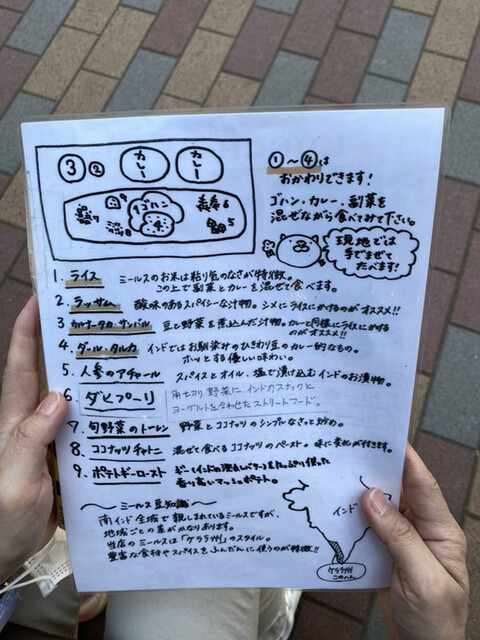 ③ ② カレー カレー
ゴハン
6
5
①〜④は
おかわりできます！
ゴハン・カレー・副菜を
混ぜながら食べてみて下さい。
現地では
手でまぜて
たべます！
1. ライス ミールスのお米は粘り気のなさが特徴。
この上で副菜とカレーを混ぜて食べます。
2. ラッサム 酸味のあるスパイシーな汁物。シメにライスにかけるのがオススメ!!
3 カルナータカ・サンバル 豆と野菜を煮込んだ汁物。カレーと同様にライスにかける
のがオススメ!!
4. ダール・タルカ インドではお馴染みのひきわり豆のカレー的なもの。
ホッとする優しい味わい。
5. 人参のアチャール スパイスとオイル・塩で漬け込むインドのお漬物。
6 ダヒプーリ 角切り野菜に、インドのスナックと
ヨーグルトを合わせたストリートフード。
7. 旬野菜のトーレン 野菜とココナッツのシンプルなさっと炒め。
8. ココナッツチャトニ 混ぜて食べるココナッツのペースト。味に変化が付きます。
9. ポテトギーロースト ギー(インドの澄ましバター)をたっぷり使った
香り高いマッシュポテト。
〜ミールス豆知識〜
南インド全域で親しまれているミールスですが、
地域ごとの差がかなりあります。
当店のミールスは「ケララ州」のスタイル。
豊富な食材やスパイスをふんだんに使うのが特徴!!
インド
ケララ州
このへん